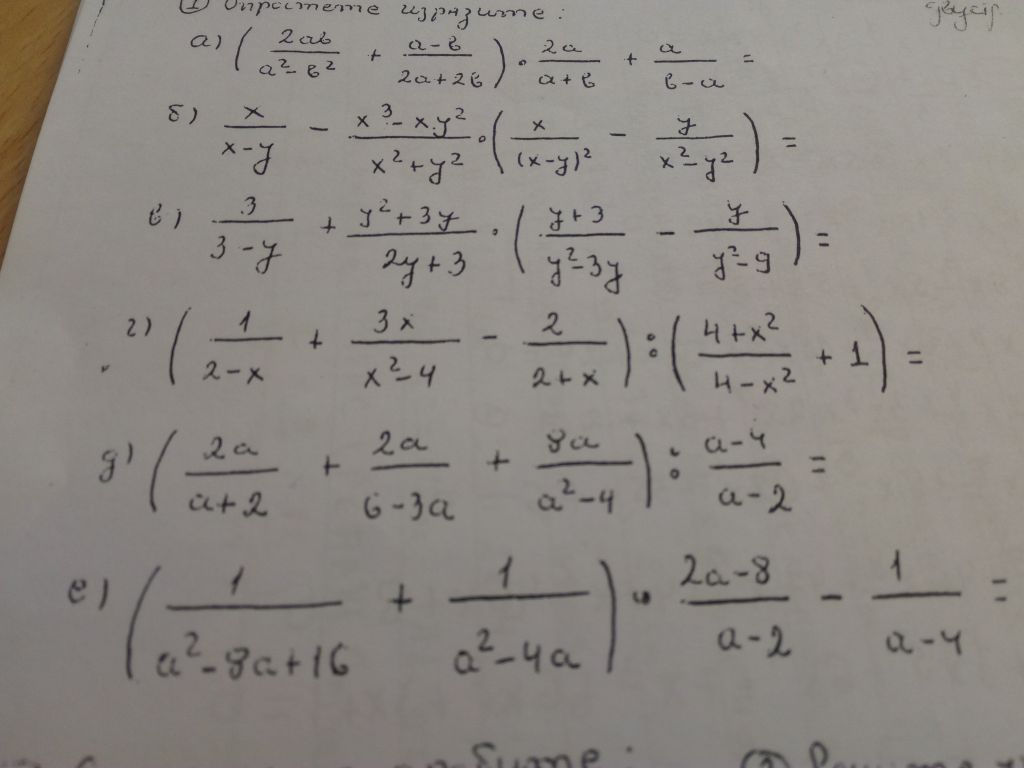 ① Опростете изразите:
а) (2ab/(a²-b²) + (a-b)/(2a+2b)) · 2a/(a+b) + a/(b-a) =
б) x/(x-y) - (x³-x.y²)/(x²+y²) · (x/(x-y)² - y/(x²-y²)) =
в) 3/(3-y) + (y²+3y)/(2y+3) · ((y+3)/(y²-3y) - y/(y²-9)) =
г) (1/(2-x) + 3x/(x²-4) - 2/(2+x)) : ((4+x²)/(4-x²) + 1) =
д) (2a/(a+2) + 2a/(6-3a) + 8a/(a²-4)) : (a-4)/(a-2) =
е) (1/(a²-8a+16) + 1/(a²-4a)) · (2a-8)/(a-2) - 1/(a-4) =